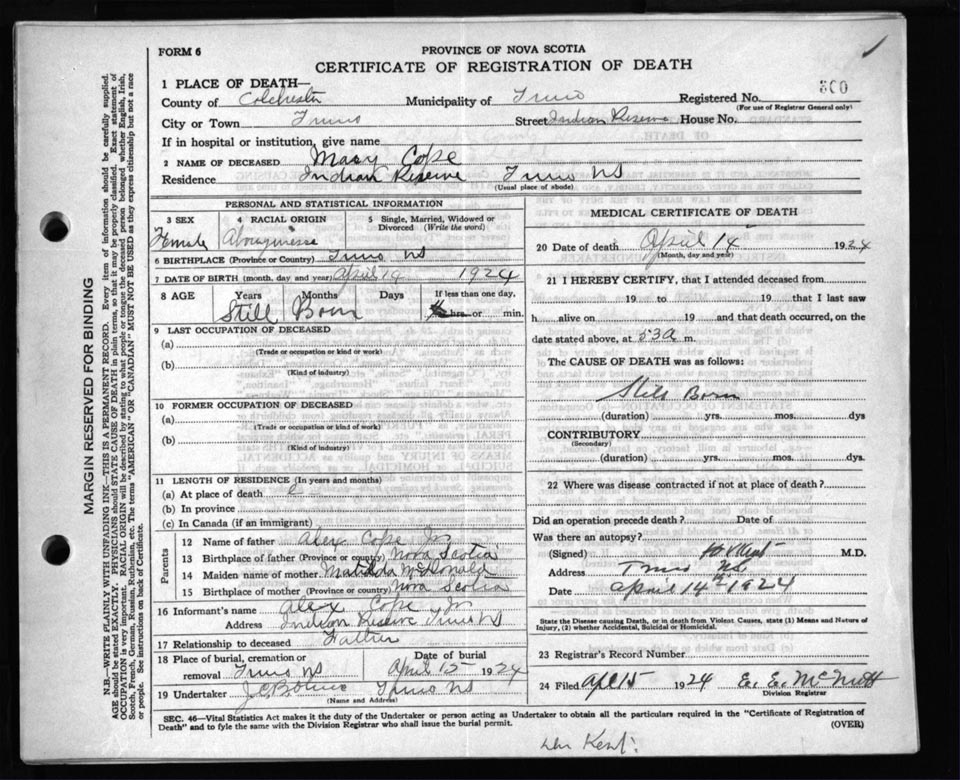 FORM 6
PROVINCE OF NOVA SCOTIA
CERTIFICATE OF REGISTRATION OF DEATH
1 PLACE OF DEATH—
County of Colchester Municipality of Truro Registered No.
(For use of Registrar General only)
City or Town Truro Street Indian Reserve House No.
If in hospital or institution, give name
2 NAME OF DECEASED Mary Cope
Residence Indian Reserve Truro NS
(Usual place of abode)
PERSONAL AND STATISTICAL INFORMATION
3 SEX 4 RACIAL ORIGIN 5 Single, Married, Widowed or Divorced (Write the word)
Female
6 BIRTHPLACE (Province or Country) Truro NS
7 DATE OF BIRTH (month, day and year) April 14 1924
8 AGE Years Months Days If less than one day,
Still Born hrs. or min.
9 LAST OCCUPATION OF DECEASED
(a)
(Trade or occupation or kind or work)
(b)
(Kind of industry)
10 FORMER OCCUPATION OF DECEASED
(a)
(Trade or occupation or kind of work)
(b)
(Kind of industry)
11 LENGTH OF RESIDENCE (In years and months)
(a) At place of death
(b) In province
(c) In Canada (if an immigrant)
Parents
12 Name of father Alex Cope Jr
13 Birthplace of father (Province or country) Nova Scotia
14 Maiden name of mother Matilda McDonald
15 Birthplace of mother (Province or country) Nova Scotia
16 Informant's name Alex Cope Jr
Address Indian Reserve Truro NS
17 Relationship to deceased Father
18 Place of burial, cremation or removal Truro NS
Date of burial April 15 1924
19 Undertaker Truro NS
(Name and Address)
MEDICAL CERTIFICATE OF DEATH
20 Date of death April 14 1924
(Month, day and year)
21 I HEREBY CERTIFY, that I attended deceased from
19 to 19 that I last saw
h alive on 19 and that death occurred, on the
date stated above, at 530 a m.
The CAUSE OF DEATH was as follows:
Still Born
(duration) yrs. mos. dys
CONTRIBUTORY
(Secondary)
(duration) yrs. mos. dys
22 Where was disease contracted if not at place of death?
Did an operation precede death? Date of
Was there an autopsy?
(Signed) M.D.
Address Truro NS.
Date April 14th 1924
State the Disease causing Death, or in death from Violent Causes, state (1) Means and Nature of Injury, (2) whether Accidental, Suicidal or Homicidal.
23 Registrar's Record Number
24 Filed Apl 15 1924 E. E. McNutt
Division Registrar
SEC. 46—Vital Statistics Act makes it the duty of the Undertaker or person acting as Undertaker to obtain all the particulars required in the "Certificate of Registration of
Death" and to fyle the same with the Division Registrar who shall issue the burial permit. (OVER)
Dr Kent
MARGIN RESERVED FOR BINDING
N.B.—WRITE PLAINLY WITH UNFADING INK—THIS IS A PERMANENT RECORD. Every item of information should be carefully supplied.
AGE should be stated EXACTLY. PHYSICIANS should STATE CAUSE OF DEATH in plain terms, so that it may be properly classified. Exact statement of
OCCUPATION is very important. RACIAL ORIGIN will be described by stating to what people or tongue the deceased person belonged whether English, Irish,
Scotch, French, German, Russian, Ruthenian, etc. The terms "AMERICAN" OR "CANADIAN" MUST NOT BE USED as they express citizenship but not a race
or people. See instructions on back of Certificate.